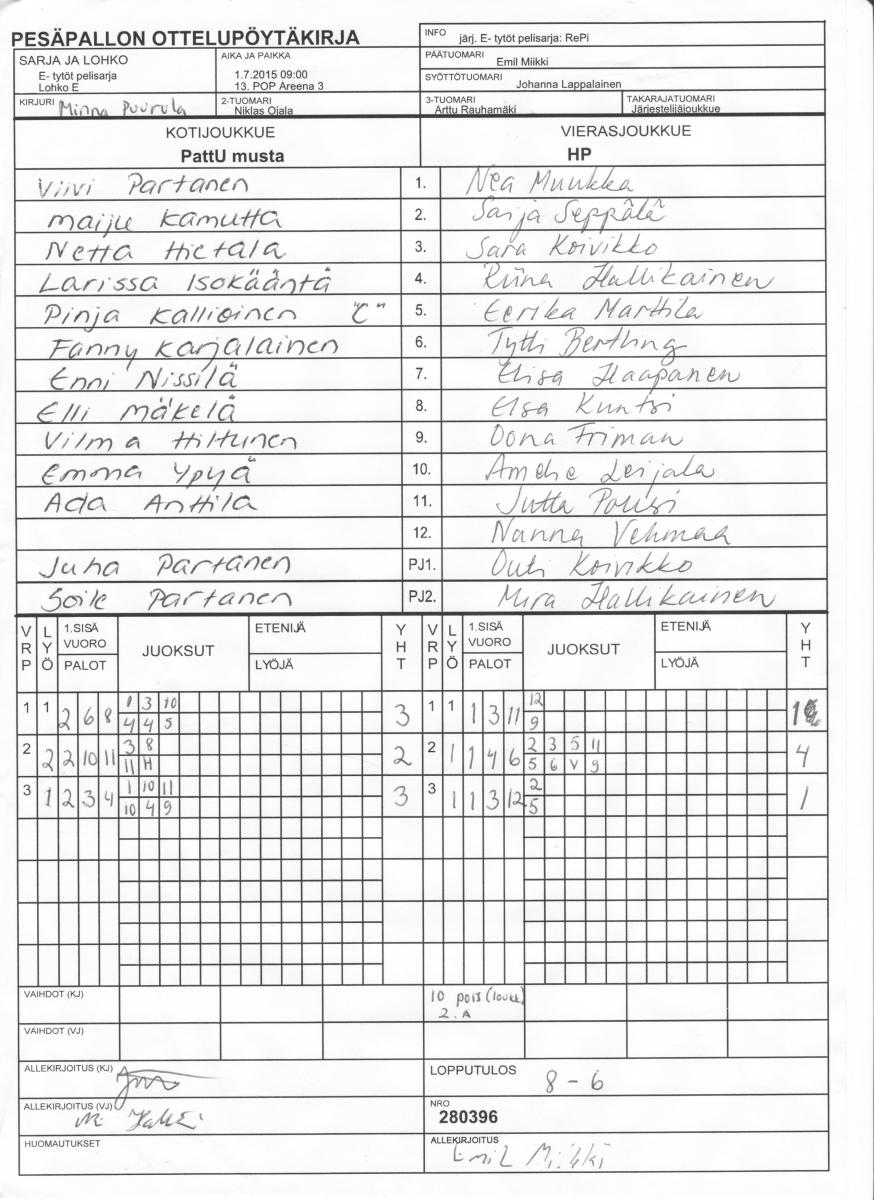 PESÄPALLON OTTELUPÖYTÄKIRJA
INFO järj. E- tytöt pelisarja: RePi
PÄÄTUOMARI Emil Miikki
SARJA JA LOHKO
E- tytöt pelisarja
Lohko E
AIKA JA PAIKKA
1.7.2015 09:00
13. POP Areena 3
SYÖTTÖTUOMARI Johanna Lappalainen
KIRJURI Minna Puurula
2-TUOMARI
Niklas Ojala
3-TUOMARI
Arttu Rauhamäki
TAKARAJATUOMARI
Järjestelijäjoukkue
KOTIJOUKKUE VIERASJOUKKUE
PattU musta HP
Viivi Partanen 1. Nea Muukka
Maiju Kamutta 2. Saija Seppälä
Netta Hietala 3. Sara Koivikko
Larissa Isokääntä 4. Riina Hallikainen
Pinja Kallioinen "C" 5. Eerika Marttila
Fanny Karjalainen 6. Tytti Bertling
Enni Nissilä 7. Elisa Haapanen
Elli Mäkelä 8. Elsa Kuntsi
Vilma Hiltunen 9. Oona Friman
Emma Ypyä 10. Amelie Leijala
Ada Anttila 11. Jutta Pousi
12. Nanna Vehmaa
Juha Partanen PJ1. Outi Koivikko
Soile Partanen PJ2. Mira Hallikainen
VRP LYÖ 1.SISÄ VUORO PALOT JUOKSUT ETENIJÄ LYÖJÄ YHT VRP LYÖ 1.SISÄ VUORO PALOT JUOKSUT ETENIJÄ LYÖJÄ YHT
1 1 2 6 8 1 3 10 3 1 1 1 3 11 12 1
4 4 5 9
2 2 2 10 11 3 8 2 2 1 1 4 6 2 3 5 11 4
11 H 5 6 V 9
3 1 2 3 4 1 10 11 3 3 1 1 3 12 2 1
10 4 9 5
VAIHDOT (KJ) 10 pois (loukk)
2. A
VAIHDOT (VJ)
ALLEKIRJOITUS (KJ)
LOPPUTULOS 8 - 6
ALLEKIRJOITUS (VJ)
NRO
280396
HUOMAUTUKSET
ALLEKIRJOITUS
Emil Miikki